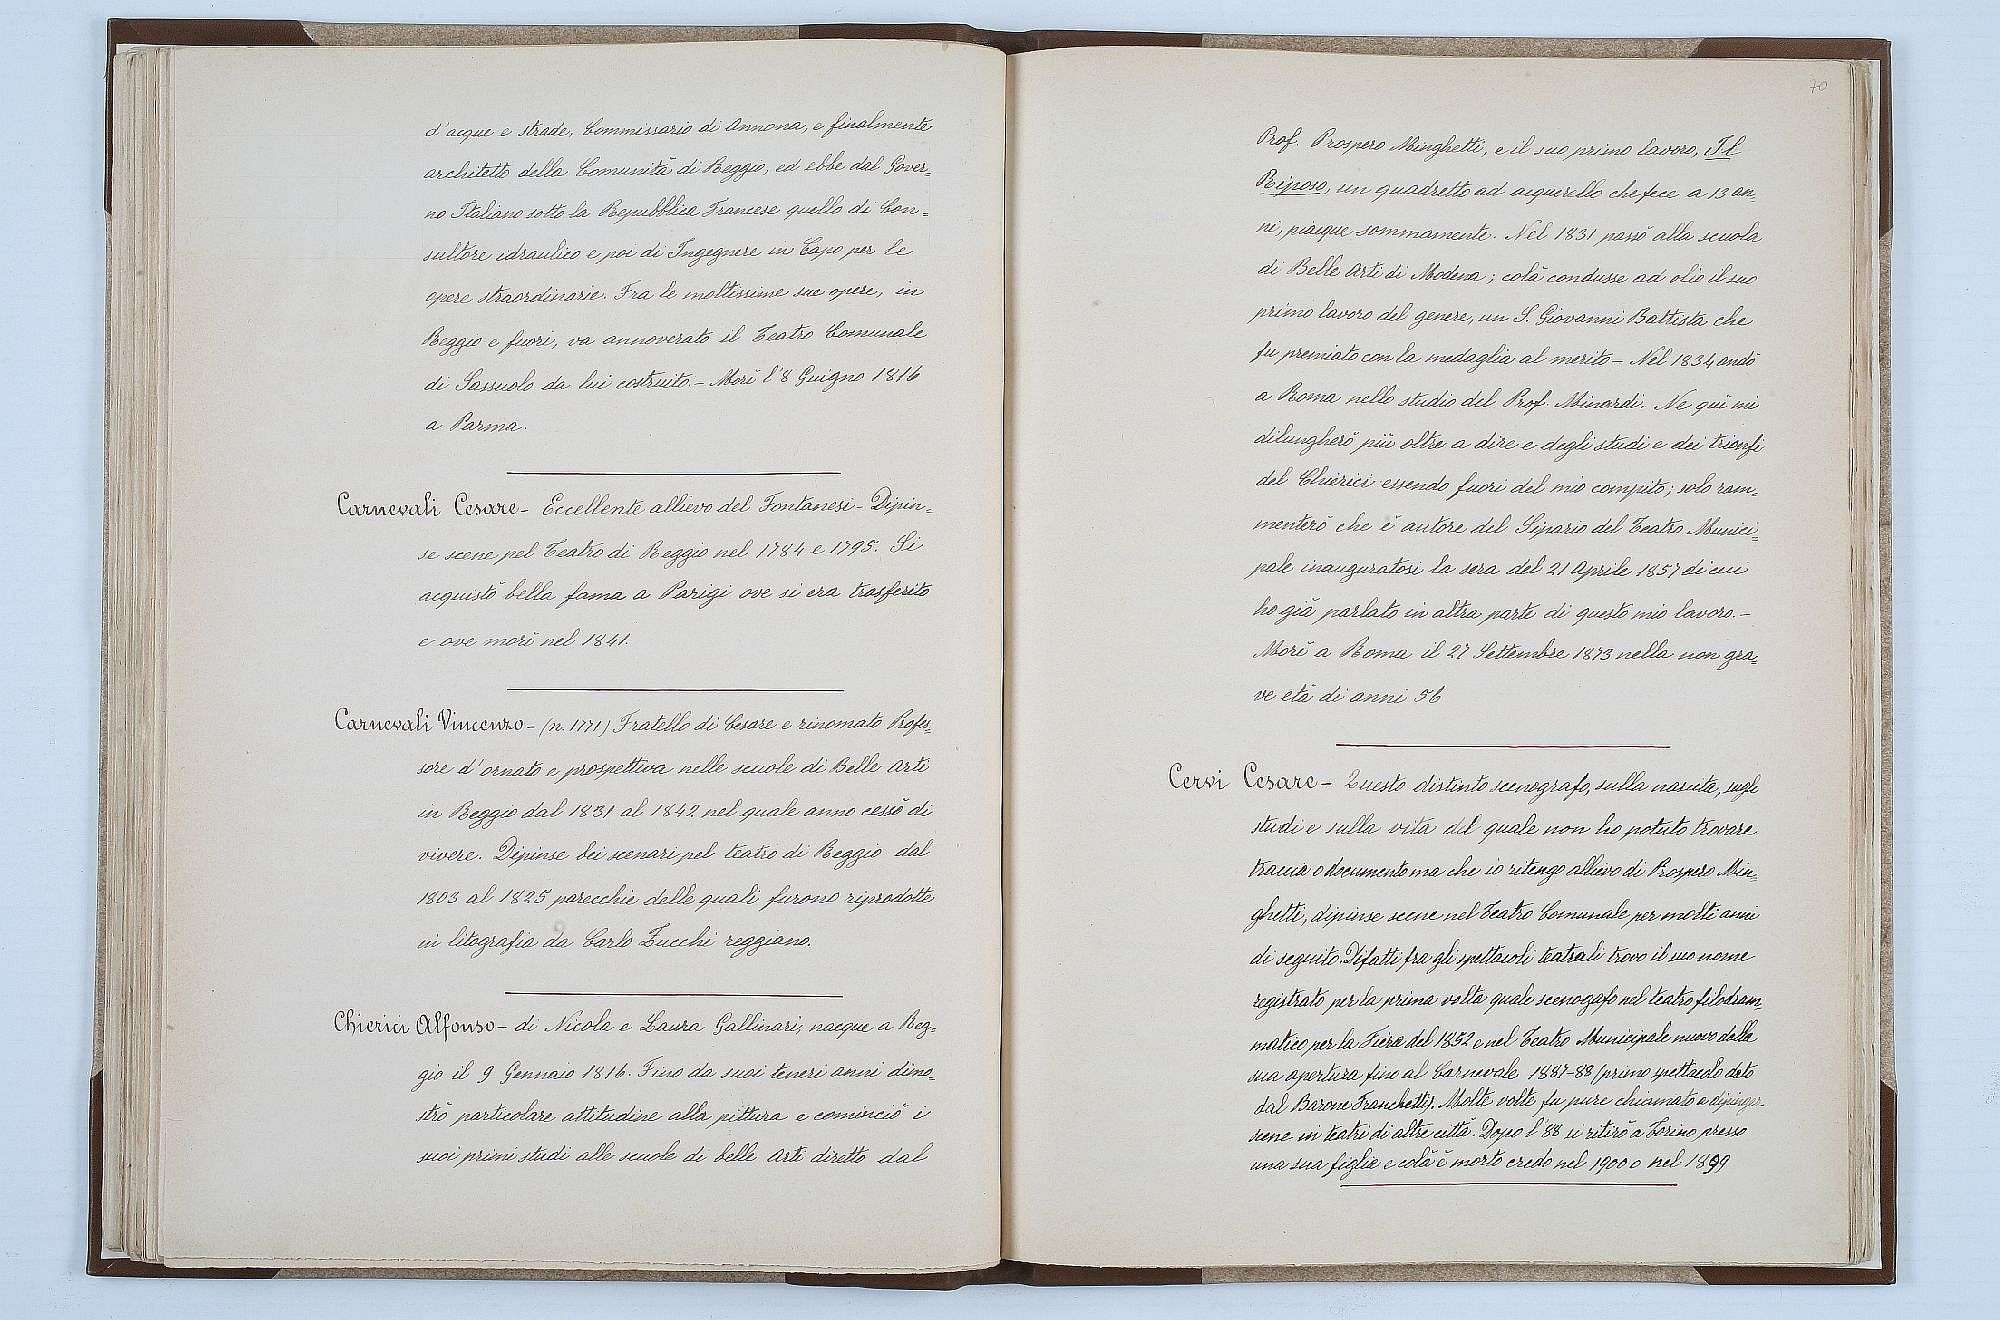 d'acque e strade, Commissario di Annona, e finalmente
architetto della Comunità di Reggio, ed ebbe dal Gover=
no Italiano sotto la Repubblica Francese quello di Con=
sultore idraulico e poi di Ingegnere in Capo per le
opere straordinarie. Fra le moltissime sue opere, in
Reggio e fuori, va annoverato il Teatro Comunale
di Sassuolo da lui costruito. - Morì l'8 Guigno 1816
a Parma.
Carnevali Cesare - Eccellente allievo del Fontanesi - Dipin=
se scene pel Teatro di Reggio nel 1784 e 1795. Si
acquistò bella fama a Parigi ove si era trasferito
e ove morì nel 1841.
Carnevali Vincenzo - (n. 1771) Fratello di Cesare e rinomato Profes=
sore d'ornato e prospettiva nelle scuole di Belle Arti
in Reggio dal 1831 al 1842 nel quale anno cessò di
vivere. Dipinse bei scenari pel teatro di Reggio dal
1803 al 1825 parecchie delle quali furono riprodotte
in litografia da Carlo Zucchi reggiano.
Chierici Alfonso - di Nicola e Laura Gallinari, nacque a Reg=
gio il 9 Gennaio 1816. Fino da suoi teneri anni dimo=
strò particolare attitudine alla pittura e cominciò i
suoi primi studi alle scuole di belle Arti dirette dal
70
Prof. Prospero Minghetti, e il suo primo lavoro, Il
Riposo, un quadretto ad acquerello che fece a 13 an=
ni, piacque sommamente. Nel 1831 passò alla scuola
di Belle Arti di Modena; colà condusse ad olio il suo
primo lavoro del genere, un S. Giovanni Battista che
fu premiato con la medaglia al merito - Nel 1834 andò
a Roma nello studio del Prof. Minardi. Ne quì mi
dilungherò più oltre a dire e degli studi e dei trionfi
del Chierici essendo fuori del mio compito; solo ram=
menterò che è autore del Sipario del Teatro Munici=
pale inauguratosi la sera del 21 Aprile 1857 di cui
ho già parlato in altra parte di questo mio lavoro. -
Morì a Roma il 27 Settembre 1873 nella non gra=
ve età di anni 56
Cervi Cesare - Questo distinto scenografo, sulla nascita, sugli
studi e sulla vita del quale non ho potuto trovare
traccia o documento ma che io ritengo allievo di Prospero Min=
ghetti, dipinse scene nel Teatro Comunale per molti anni
di seguito. Difatti fra gli spettacoli teatrali trovo il suo nome
registrato per la prima volta quale scenogafo nel teatro filodram=
matico per la Fiera del 1852 e nel Teatro Municipale nuovo dalla
sua apertura fino al Carnevale 1887-88 (primo spettacolo dato
dal Barone Franchetti). Molte volte fu pure chiamato a dipinger=
scene in teatri di altre città. Dopo l'88 si ritirò a Torino presso
una sua figlia e colà è morto credo nel 1900 o nel 1899